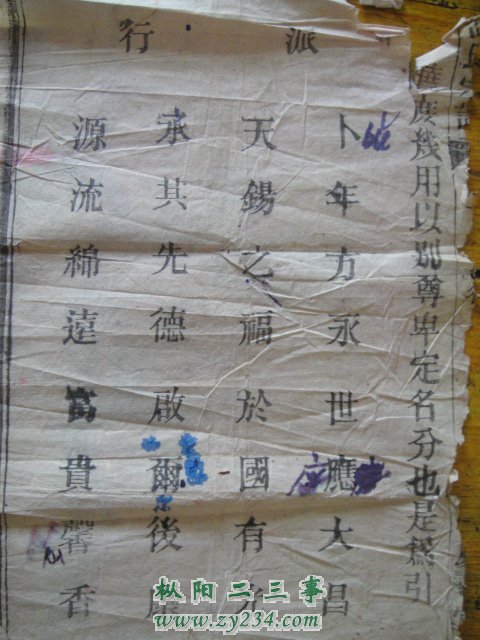 庶幾用以別尊卑定名分也是爲引
派行
卜年方永世應大昌
天錫之福於國有光
承其先德啟爾後
源流綿遠富貴馨香
枞阳二三事
www.zy234.com